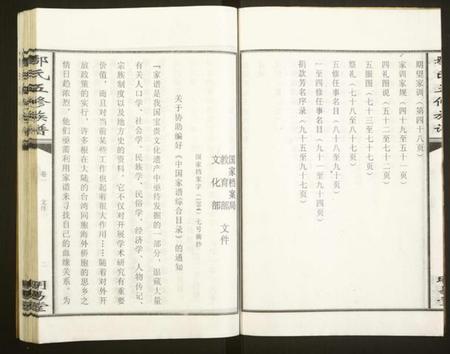 期望家训（第四十八页）
家训家规（四十九至五十一页）
四礼图说（五十二至七十二页）
五服图（七十三至七十七页）
祭礼（七十八至八十页）
五修任事名目（八十一至九十页）
一至四修任事名目（九十一至九十四页）
捐款芳名序录（九十五至九十七页）
国家档案局
教育部 文件
文化部
国家档案字（1984）七号摘抄
关于协助编好《中国家谱综合目录》的通知
“家谱是我国宝贵文化遗产中亟待发掘的一部分，蕴藏大量
有关人口学、社会学、民族学、民俗学、经济学、人物传记、
宗族制度以及地方史的资料，它不仅对开展学术研究有重要
价值，而且对当前某些工作也起着很大作用……随着对外开
放政策的实行，许多根在大陆的台湾同胞海外侨胞的思乡之
情日趋浓烈，他们亟需利用家谱来寻找自己的血缘关系。为
氏五修族谱
卷一
文件
二